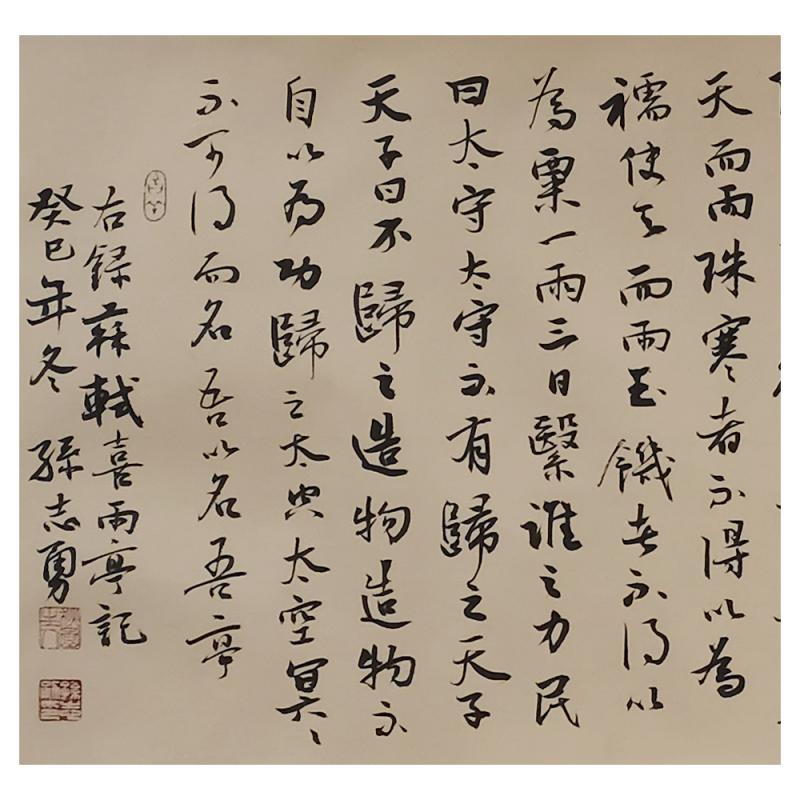 天而雨珠寒者不得以為
襦使天而雨玉饑者不得以
為粟一雨三日繄誰之力民
曰太守太守不有歸之天子
天子曰不歸之造物造物不
自以為功歸之太空太空冥冥
不可得而名吾以名吾亭
右録蘇軾喜雨亭記
癸巳年冬 孫志勇